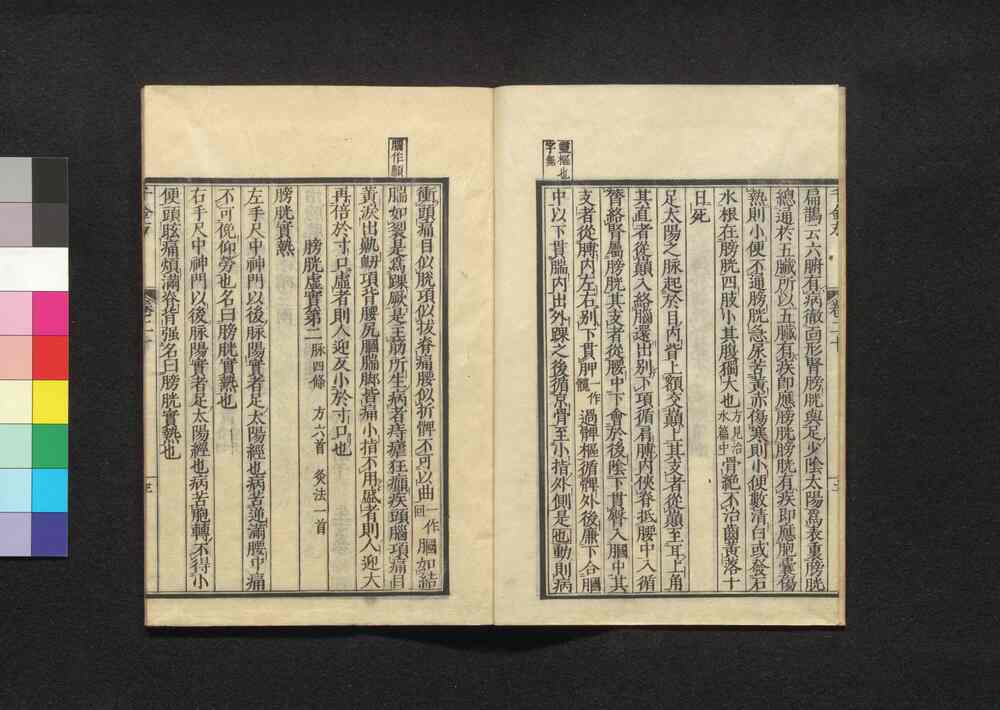 靈樞也
字無
扁鵲云六腑有病徹面形腎膀胱與足少陰太陽爲表裏膀胱
總通於五臟所以五臟有疾即應膀胱膀胱有疾即應胞囊傷
熱則小便不通膀胱急尿苦黃赤傷寒則小便數清白或發石
水根在膀胱四肢小其腹獨大也方見治水篇中骨絕不治齒黃落十
日死
足太陽之脉起於目內眥上額交巔上其支者從巔至耳上角
其直者從巔入絡腦還出別下項循肩膊內俠脊抵腰中入循
膂絡腎屬膀胱其支者從腰中下會於後陰下貫臀入膕中其
支者從膊內左右別下貫胂一作髖過髀樞循髀外後廉下合膕
中以下貫腨內出外踝之後循京骨至小指外側是也動則病
膕作顏
衝頭痛目似脫項似拔脊痛腰似折髀不可以曲一作回膕如結
腨如裂是爲踝厥是主筋所生病者痔瘧狂癲疾頭腦項痛目
黃淚出鼽衂項背腰尻膕腨脚皆痛小指不用盛者則人迎大
再倍於寸口虛者則人迎反小於寸口也
膀胱虛實第二 脉四條 方六首 灸法一首
膀胱實熱
左手尺中神門以後脉陽實者足太陽經也病苦逆滿腰中痛
不可俛仰勞也名曰膀胱實熱也
右手尺中神門以後脉陽實者足太陽經也病苦胞轉不得小
便頭眩痛煩滿脊背强名曰膀胱實熱也